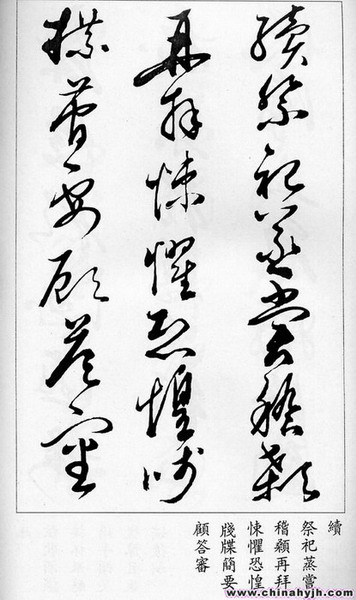 續祭祀蒸嘗稽顙
再拜悚懼恐惶牋
牒簡要顧答審
續
祭祀蒸嘗
稽顙再拜
悚懼恐惶
牋牒簡要
顧答審
www.chinahyjh.com